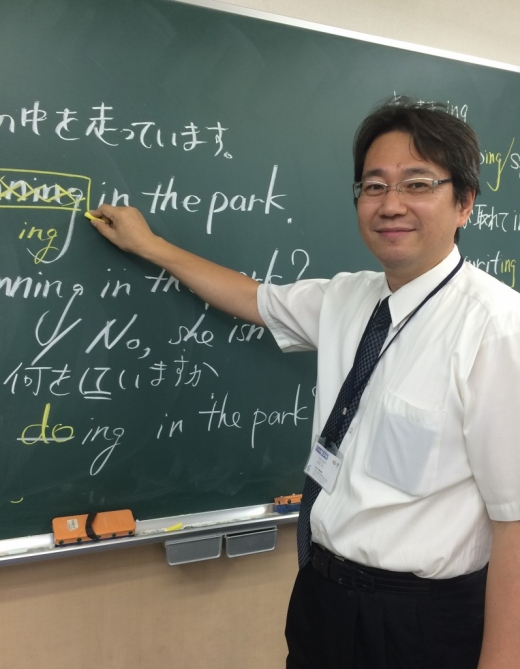 の中を走っています。
ning in the park.
ing
nning in the park?
No, she isn
何をしていますか
doing in the park?
ing
ing/s
取れてi
writing